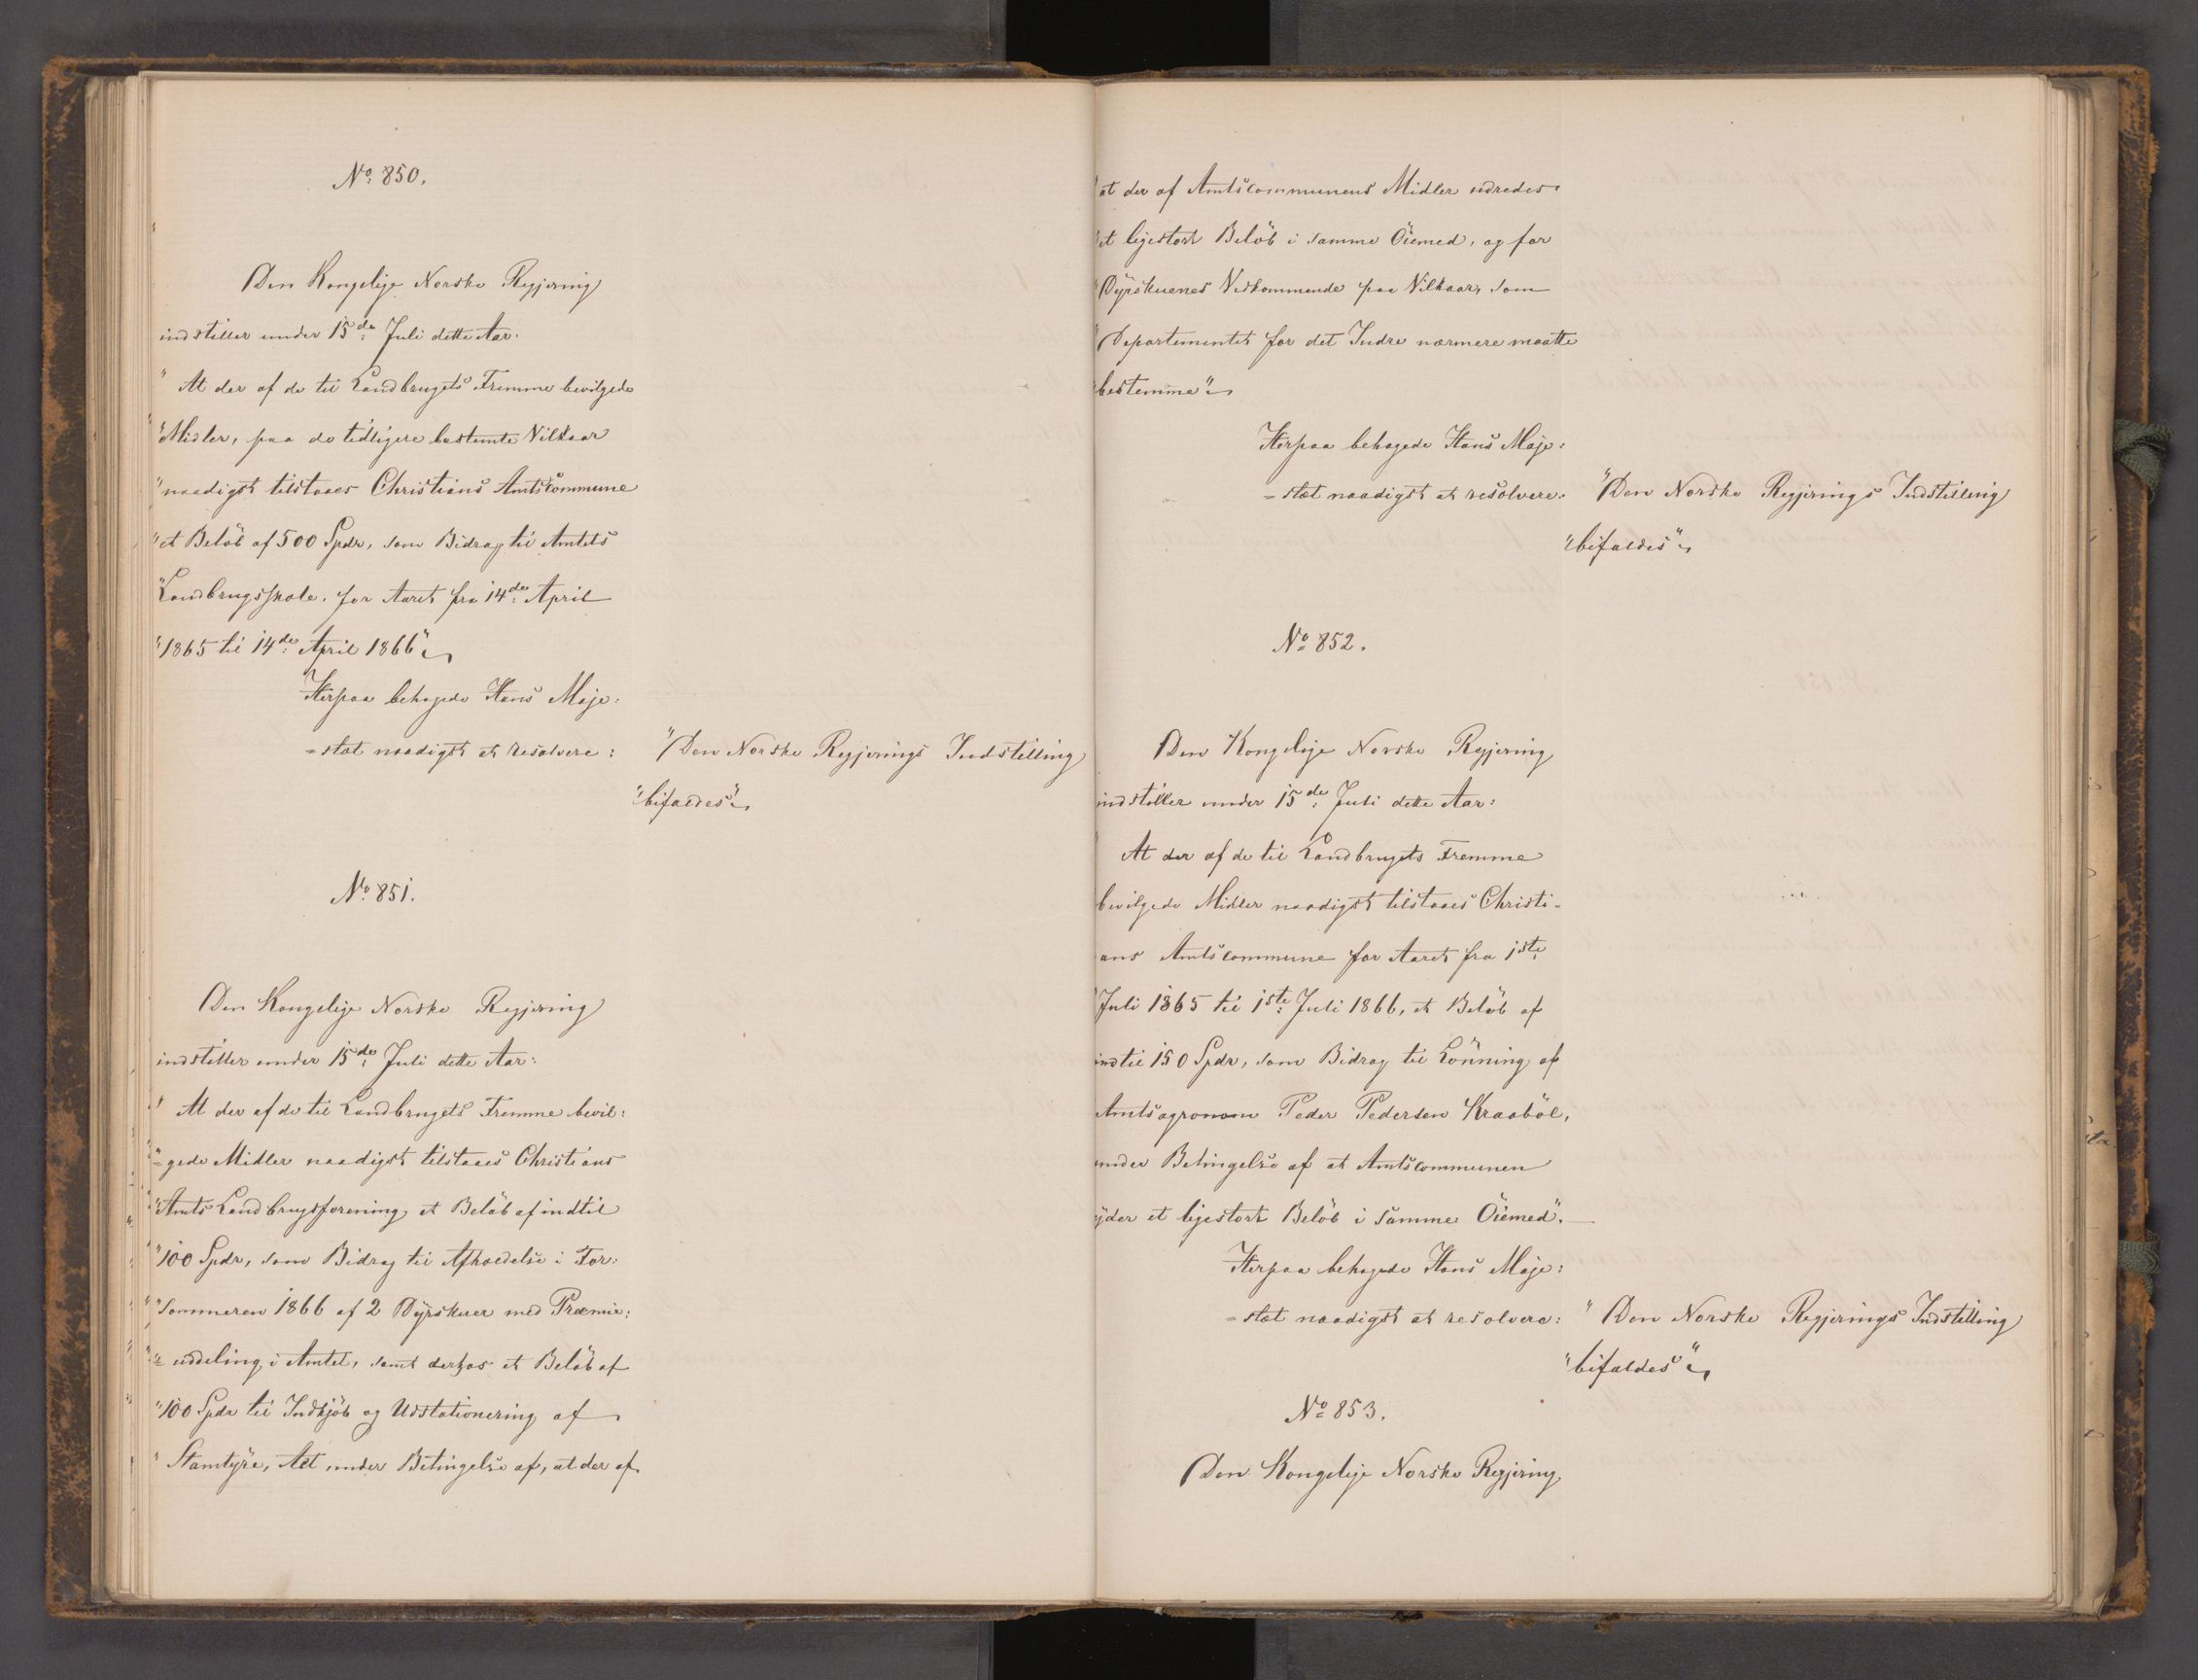 No: 850.
Den Kongelige Norske Regjering
indstiller under 15de: Juli dette Aar:
" At der af de til Landbrugets Fremme bevilgede
"Midler, paa de tidligere bestemte Vilkaar
"naadigst tilstaaes Christians Amtscommune
"et Beløb af 500 Spdr, som Bidrag til Amtets
"Landbrugsskole. for Aaret fra 14de: April
"1865 til 14de: April 1866"
Herpaa behagede Hans Maje:
=stæt naadigst at resolvere:
"Den Norske Regjerings Indstilling
"bifaldes"
No: 851.
Den Kongelige Norske Regjering
indstiller under 15de: Juli dette Aar:
" At der af de til Landbrugets Fremme bevil:
"=gede Midler naadigst tilstaaes Christians
"Amts Landbrugsforening et Beløb af indtil
"100 Spdr, som Bidrag til Afholdelse i For:
"Sommeren 1866 af 2 Dyrskuer med Præmie:
"=uddeling i Amtet, samt derhos et Beløb af
"100 Spdr til Indkjøb og Udstationering af
" Stamtyre, Alt under Betingelse af, at der af
"at der af Amtscommunens Midler udredes
"et ligestort Beløb i samme Öiemed, og for
"Dyrskuenes Vedkommende paa Vilkaar, som
"Departementet for det Indre nærmere maatte
"bestemme"
Herpaa behagede Hans Maje:
=stæt naadigst at resolvere:
"Den Norske Regjerings Indstilling
"bifaldes"
No= 852.
Den Kongelige Norske Regjering
indstiller under 15de: Juli dette Aar:
" At der af de til Landbrugets Fremme
bevilgede Midler naadigst tilstaaes Christi=
ans Amtscommune for Aaret fra 1ste
"Juli 1865 til 1ste: Juli 1866, et Beløb af
indtil 150 Spdr, som Bidrag til Lönning af
Amtsagronom Peder Pedersen Kraaböl,
under Betingelse af at Amtscommunen
yder et ligestort Beløb i samme Öiemed".
Herpaa behagede Hans Maje:
=stæt naadigst at resolvere:
" Den Norske Regjerings Indstilling
"bifaldes"
No= 853.
Den Kongelige Norske Regjering